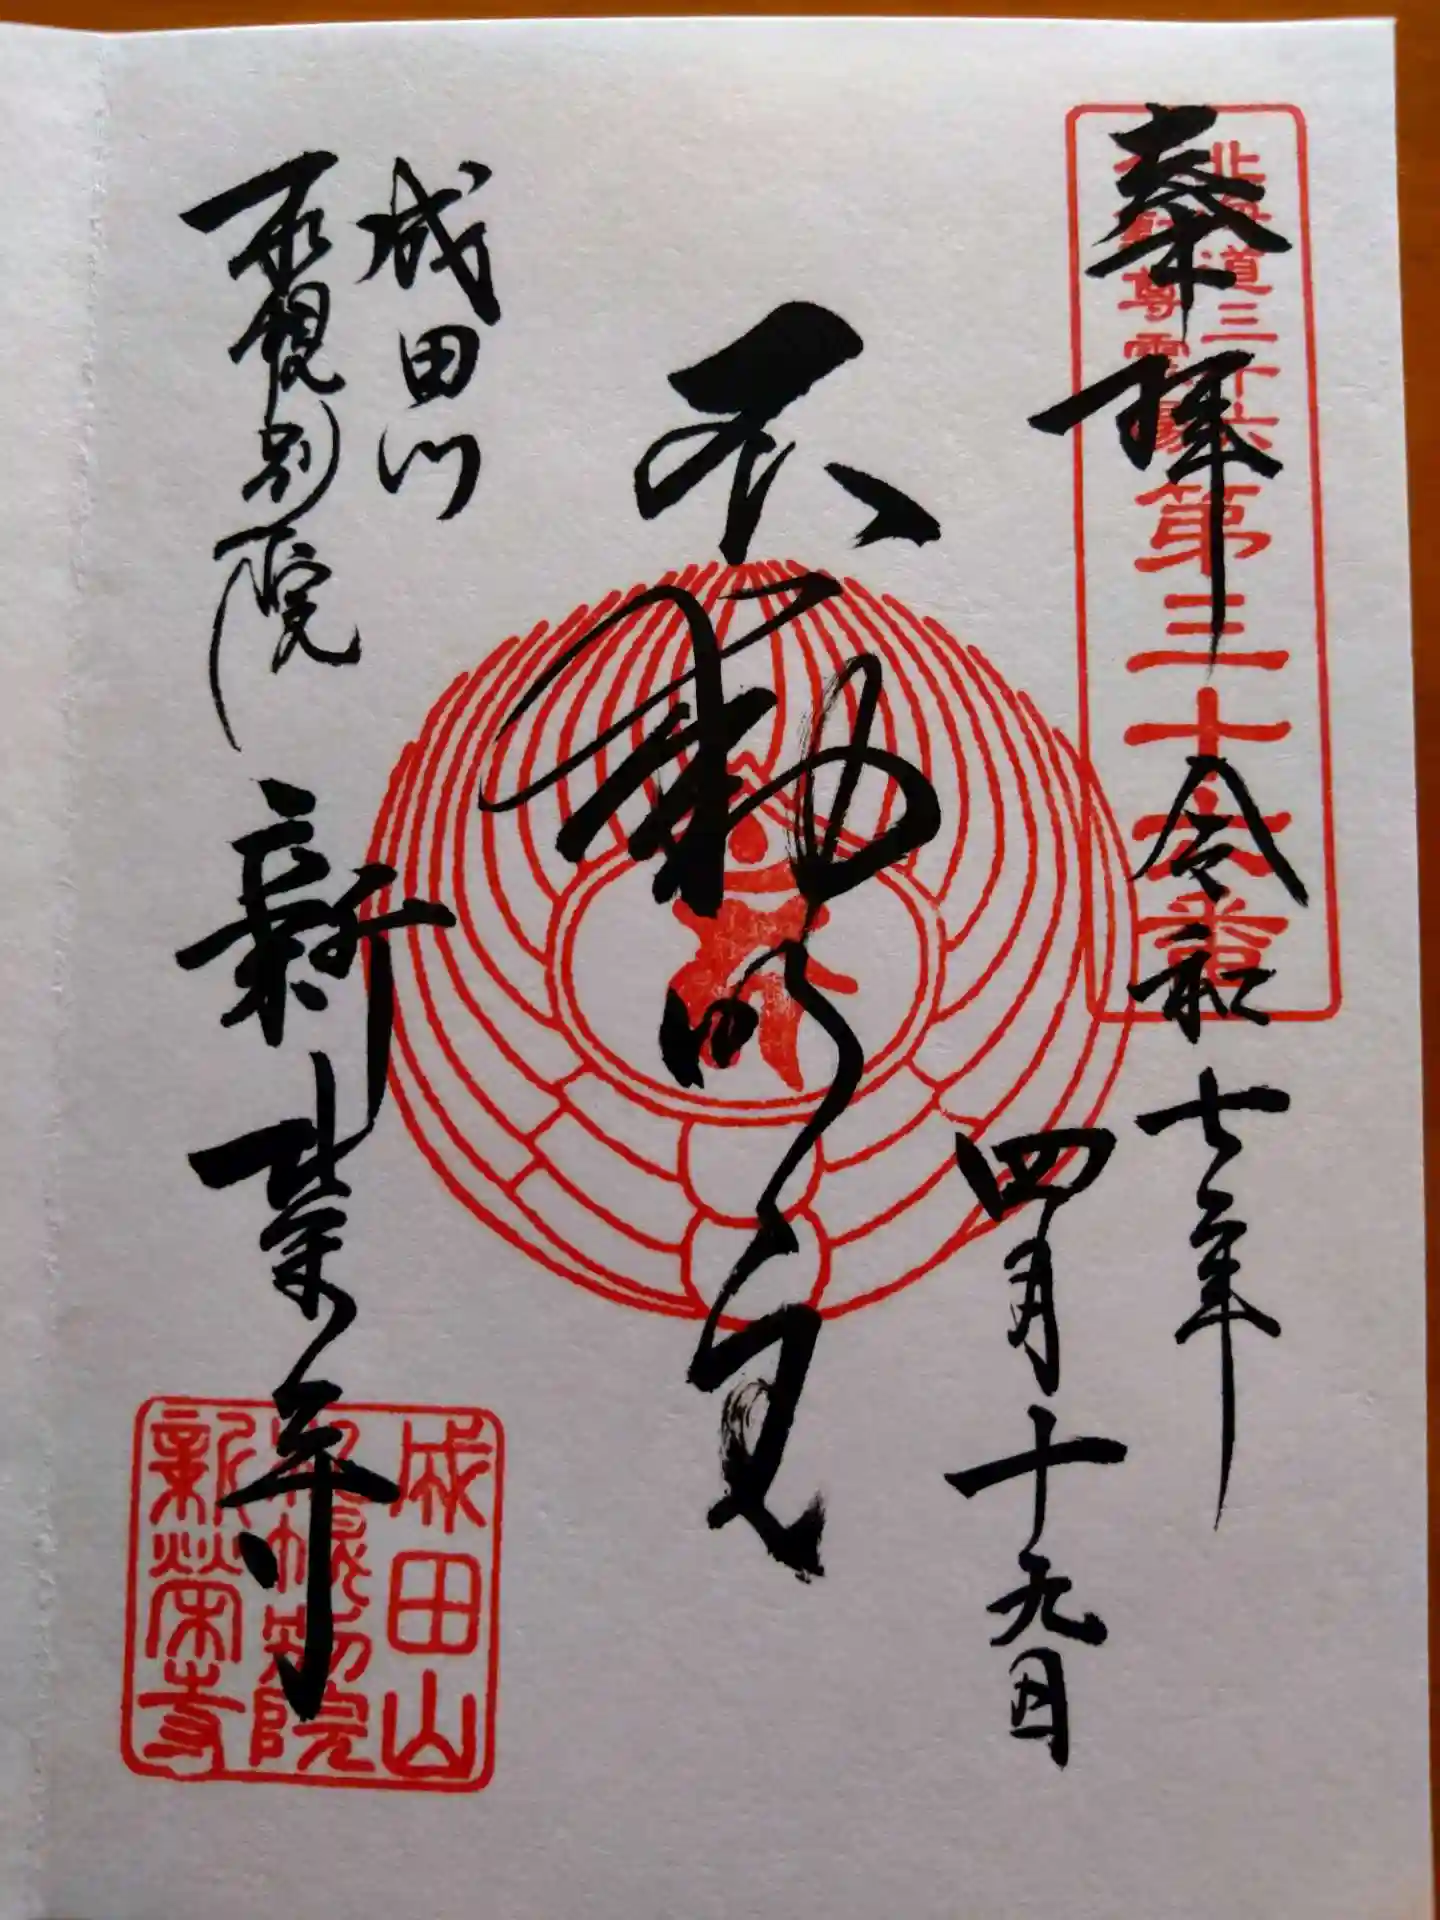 奉拝
北海道三十六
不動尊霊場
第三十六番
令和七年
四月十九日
不動明王
成田山
札幌別院
新榮寺
成田山
札幌別院
新榮寺